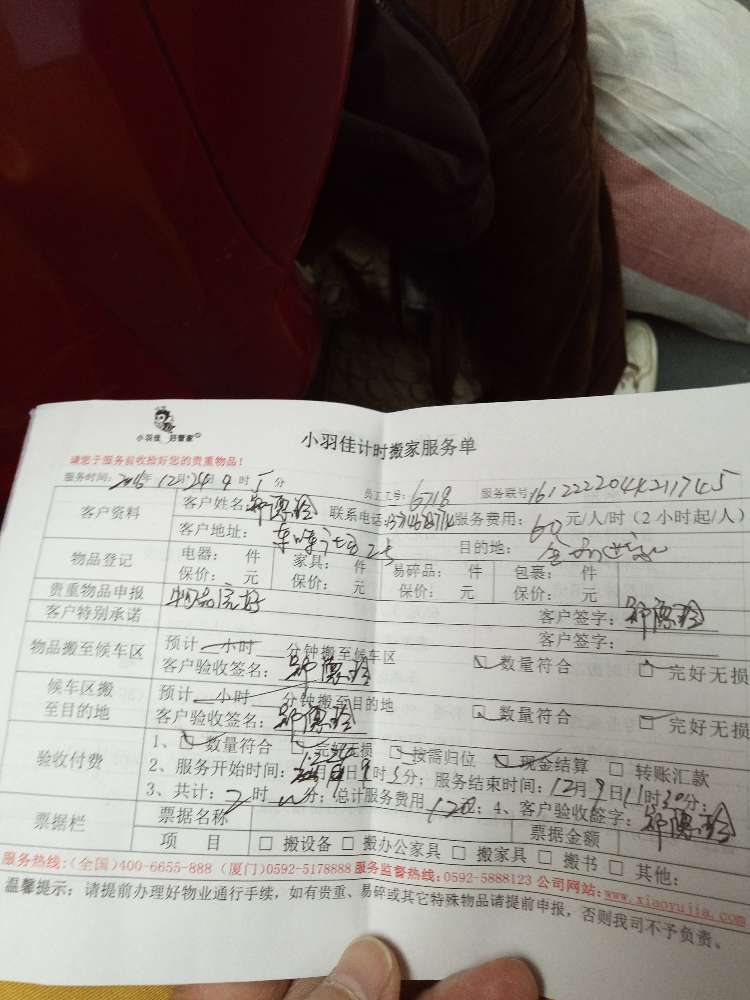 小羽佳 好管家
小羽佳计时搬家服务单
请您于服务前收拾好您的贵重物品！
服务时间：2016年12月24日9时 分 员工工号：6718 服务账号：1612222044211745
客户资料 客户姓名：郑 玲 联系电话： 服务费用：60元/人/时（2小时起/人）
客户地址： 目的地：
物品登记 电器： 件 家具： 件 易碎品： 件 包裹： 件
保价： 元 保价： 元 保价： 元 保价： 元
贵重物品申报 物品完好
客户特别承诺 客户签字：郑 玲
客户签字：
物品搬至候车区 预计 小时 分钟搬至候车区
客户验收签名：郑 玲 数量符合 完好无损
候车区搬至目的地 预计 小时 分钟搬至目的地
客户验收签名：郑 玲 数量符合 完好无损
验收付费 1、数量符合 完好无损 按需归位 现金结算 转账汇款
2、服务开始时间： 月 日9时 分；服务结束时间：12月9日11时30分；
3、共计：2时 分；总计服务费用 120；4、客户验收签字：郑 玲
票据栏 票据名称 票据金额
项 目 搬设备 搬办公家具 搬家具 搬书 其他：
服务热线：（全国）400-6655-888（厦门）0592-5178888 服务监督热线：0592-5888123 公司网站：www.xiaoyujia.com
温馨提示：请提前办理好物业通行手续，如有贵重、易碎或其它特殊物品请提前申报，否则我司不予负责。